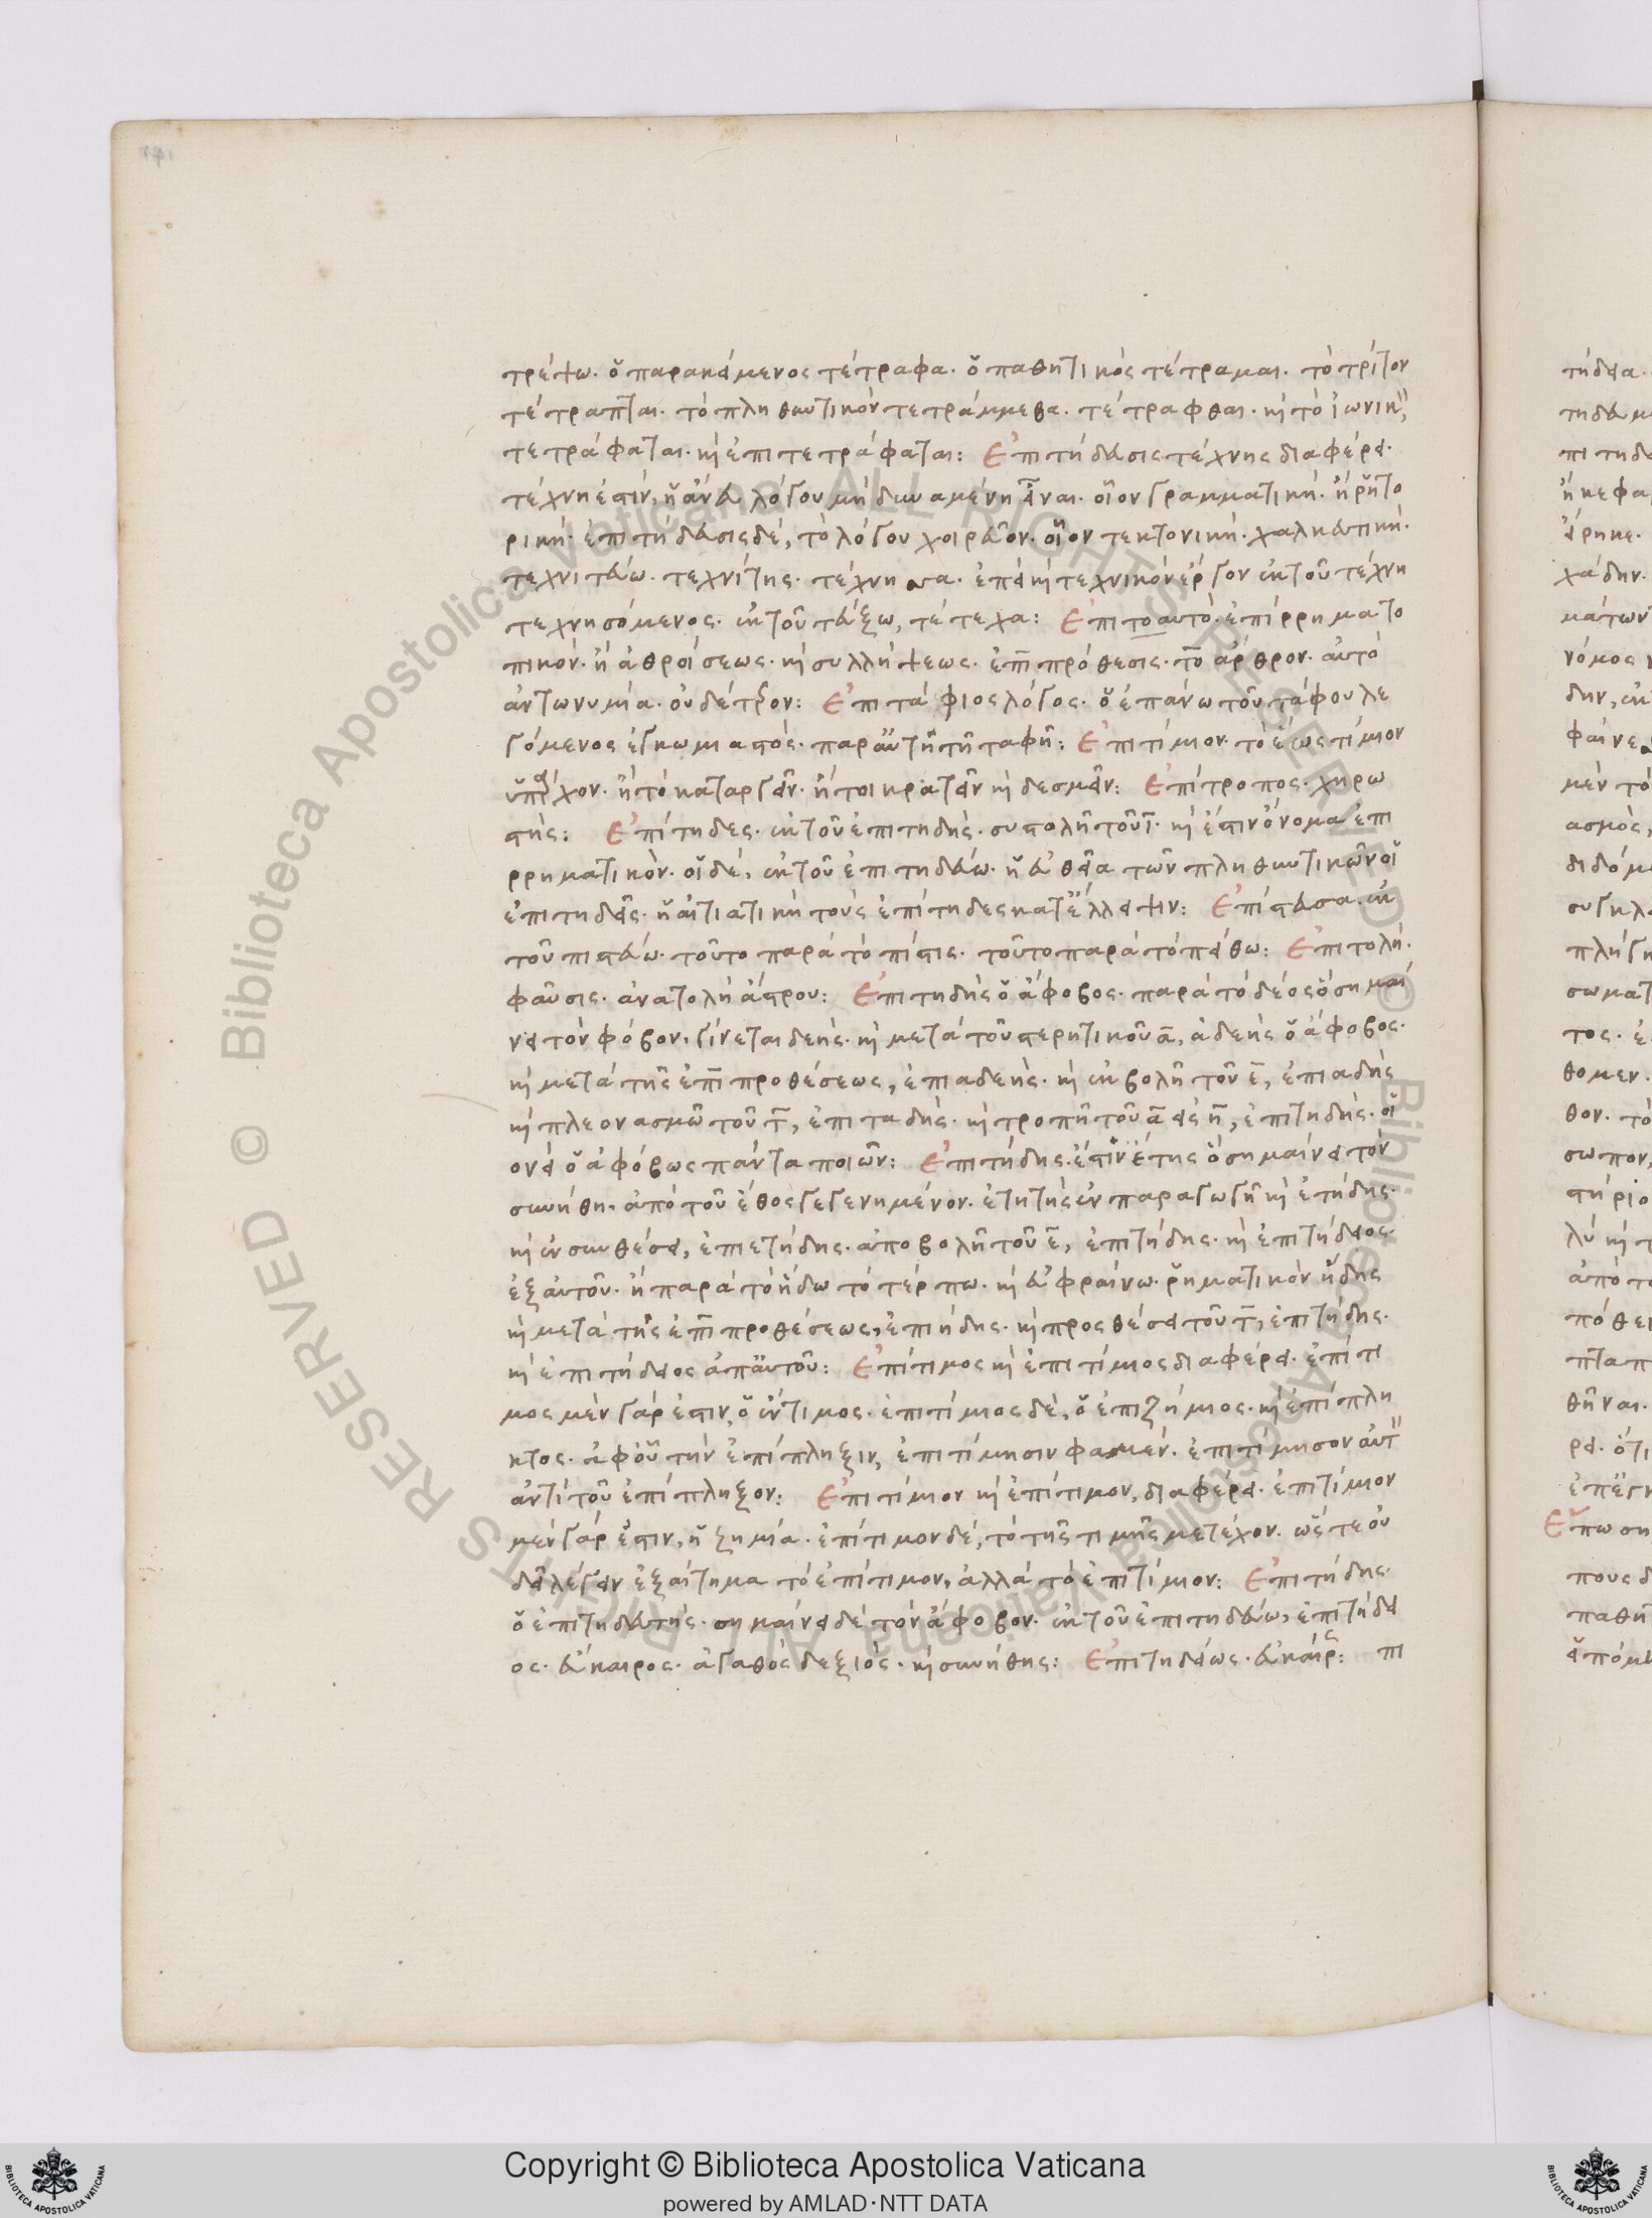 τρέψω. ὁ παρακείμενος τέτραφα. ὁ παθητικός τέτραμαι. τὸ τρίτον
τέτραπται. τὸ πληθυντικόν τετράμμεθα. τέτραφθαι. καὶ τὸ ἰωνικ
τετράφαται. καὶ ἐπιτετράφαται: Ἐπιτήδευσις τέχνης διαφέρει.
τέχνη ἐστίν, ἡ ἄνευ λόγου μὴ δυναμένη εἶναι. οἷον γραμματική. ἡ ῥητο
ρική. ἐπιτήδευσις δέ, τὸ λόγου
 οἷον τεκτονική. χαλκευτική.
τεχνιτεύω. τεχνίτης.
 ἐπεὶ καὶ τεχνικόν ἔργον ἐκ τοῦ τέχνη
τεχνησόμενος. ἐκ τοῦ τεύξω, τέτεχα: Ἐπιτοαυτό. ἐπίρρημα το
πικόν. ἢ ἀθροίσεως. καὶ συλλήψεως. ἐπι πρόθεσις. το ἄρθρον. αὐτό
ἀντωνυμία. οὐδέτερον: Ἐπιτάφιος λόγος. ὁ ἐπάνω τοῦ τάφου λε
γόμενος ἐγκωμιαστός. παρ' αὐτῇ τῇ ταφῇ: Ἐπιτίμιον. τὸ
 τίμιον
ὑπάρχον. ἢ τὸ καταργεῖν. ἤτοι κρατεῖν καὶ δεσμεῖν: Ἐπίτροπος. χηρω
στής: Ἐπίτηδες. ἐκ τοῦ ἐπιτηδής. συστολῇ τοῦ ι. καὶ ἔστιν ὄνομα ἐπι
ρρηματικόν. οἱ δέ, ἐκ τοῦ ἐπιτηδεύω. ἡ εὐθεῖα τῶν πληθυντικῶν οἱ
ἐπιτηδεῖς. ἡ αἰτιατική τοὺς ἐπίτηδες κατ' ἔλλειψιν: Ἐπίστευσα. ἐκ
τοῦ πιστεύω. τοῦτο παρὰ τὸ πίστις. τοῦτο παρὰ τὸ πείθω: Ἐπιτολή.
φαῦσις. ἀνατολή ἄστρου: Ἐπιτηδής ὁ ἄφοβος. παρὰ τὸ δέος ὃ σημαί
νει τὸν φόβον. γίνεται δεής. καὶ μετὰ τοῦ στερητικοῦ α, ἀδεής ὁ ἄφοβος.
καὶ μετὰ τῆς ἐπι προθέσεως, ἐπιαδεής. καὶ ἐκβολῇ τοῦ ε, ἐπιαδής
καὶ πλεονασμῷ τοῦ τ, ἐπιταδής. καὶ τροπῇ τοῦ α εἰς η, ἐπιτηδής. οἱ
ονεὶ ὁ ἀφόβως πάντα ποιῶν: Ἐπιτήδης. ἔστιν ἔτης ὃ σημαίνει τὸν
συνήθη. ἀπὸ τοῦ ἔθος γεγενημένον.
 ἐν παραγωγῇ καὶ ἐτήδης.
καὶ ἐν συνθέσει, ἐπιετήδης. ἀποβολῇ τοῦ ε, ἐπιτήδης. καὶ ἐπιτήδειος
ἐξ αὐτοῦ. ἢ παρὰ τὸ ἥδω τὸ τέρπω. καὶ εὐφραίνω. ῥηματικόν ἥδης
καὶ μετὰ τῆς ἐπι προθέσεως, ἐπιήδης. καὶ προσθέσει τοῦ τ, ἐπιτήδης.
καὶ ἐπιτήδειος ἀπ' αὐτοῦ: Ἐπίτιμος καὶ ἐπιτίμιος διαφέρει. ἐπίτι
μος μὲν γάρ ἐστιν, ὁ ἔντιμος. ἐπιτίμιος δὲ, ὁ ἐπιζήμιος. καὶ ἐπίπλη
κτος. ἀφ' οὗ τὴν ἐπίπληξιν, ἐπιτίμησιν φαμέν. ἐπιτίμησον αὐτ
ἀντὶ τοῦ ἐπίπληξον: Ἐπιτίμιον καὶ ἐπίτιμον, διαφέρει. ἐπιτίμιον
μὲν γάρ ἐστιν, ἡ ζημία. ἐπίτιμον δέ, τὸ τῆς τιμῆς μετέχον. ὥστε οὐ
δεῖ λέγειν ἐξαίτημα τὸ ἐπίτιμον, ἀλλὰ τὸ ἐπιτίμιον: Ἐπιτήδης.
ὁ ἐπιτηδευτής. σημαίνει δὲ τὸν ἄφοβον. ἐκ τοῦ ἐπιτηδεύω, ἐπιτήδει
ος. εὔκαιρος. ἀγαθὸς δεξιός. καὶ συνήθης: Ἐπιτηδείως. εὐκαίρως: πι
Copyright © Biblioteca Apostolica Vaticana
powered by AMLAD·NTT DATA